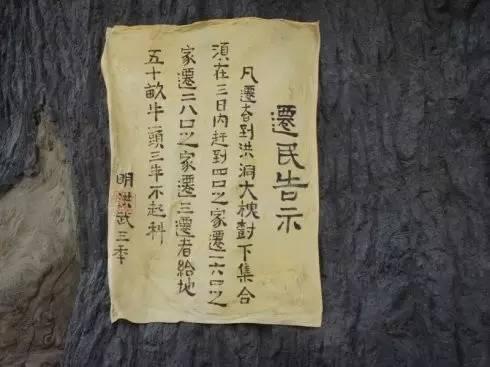 遷民告示
凡遷者到洪洞大槐樹下集合
須在三日內赶到四口之家遷一六口之
家遷二八口之家遷三遷者給地
五十畝牛一頭三年不起科
明洪武三年